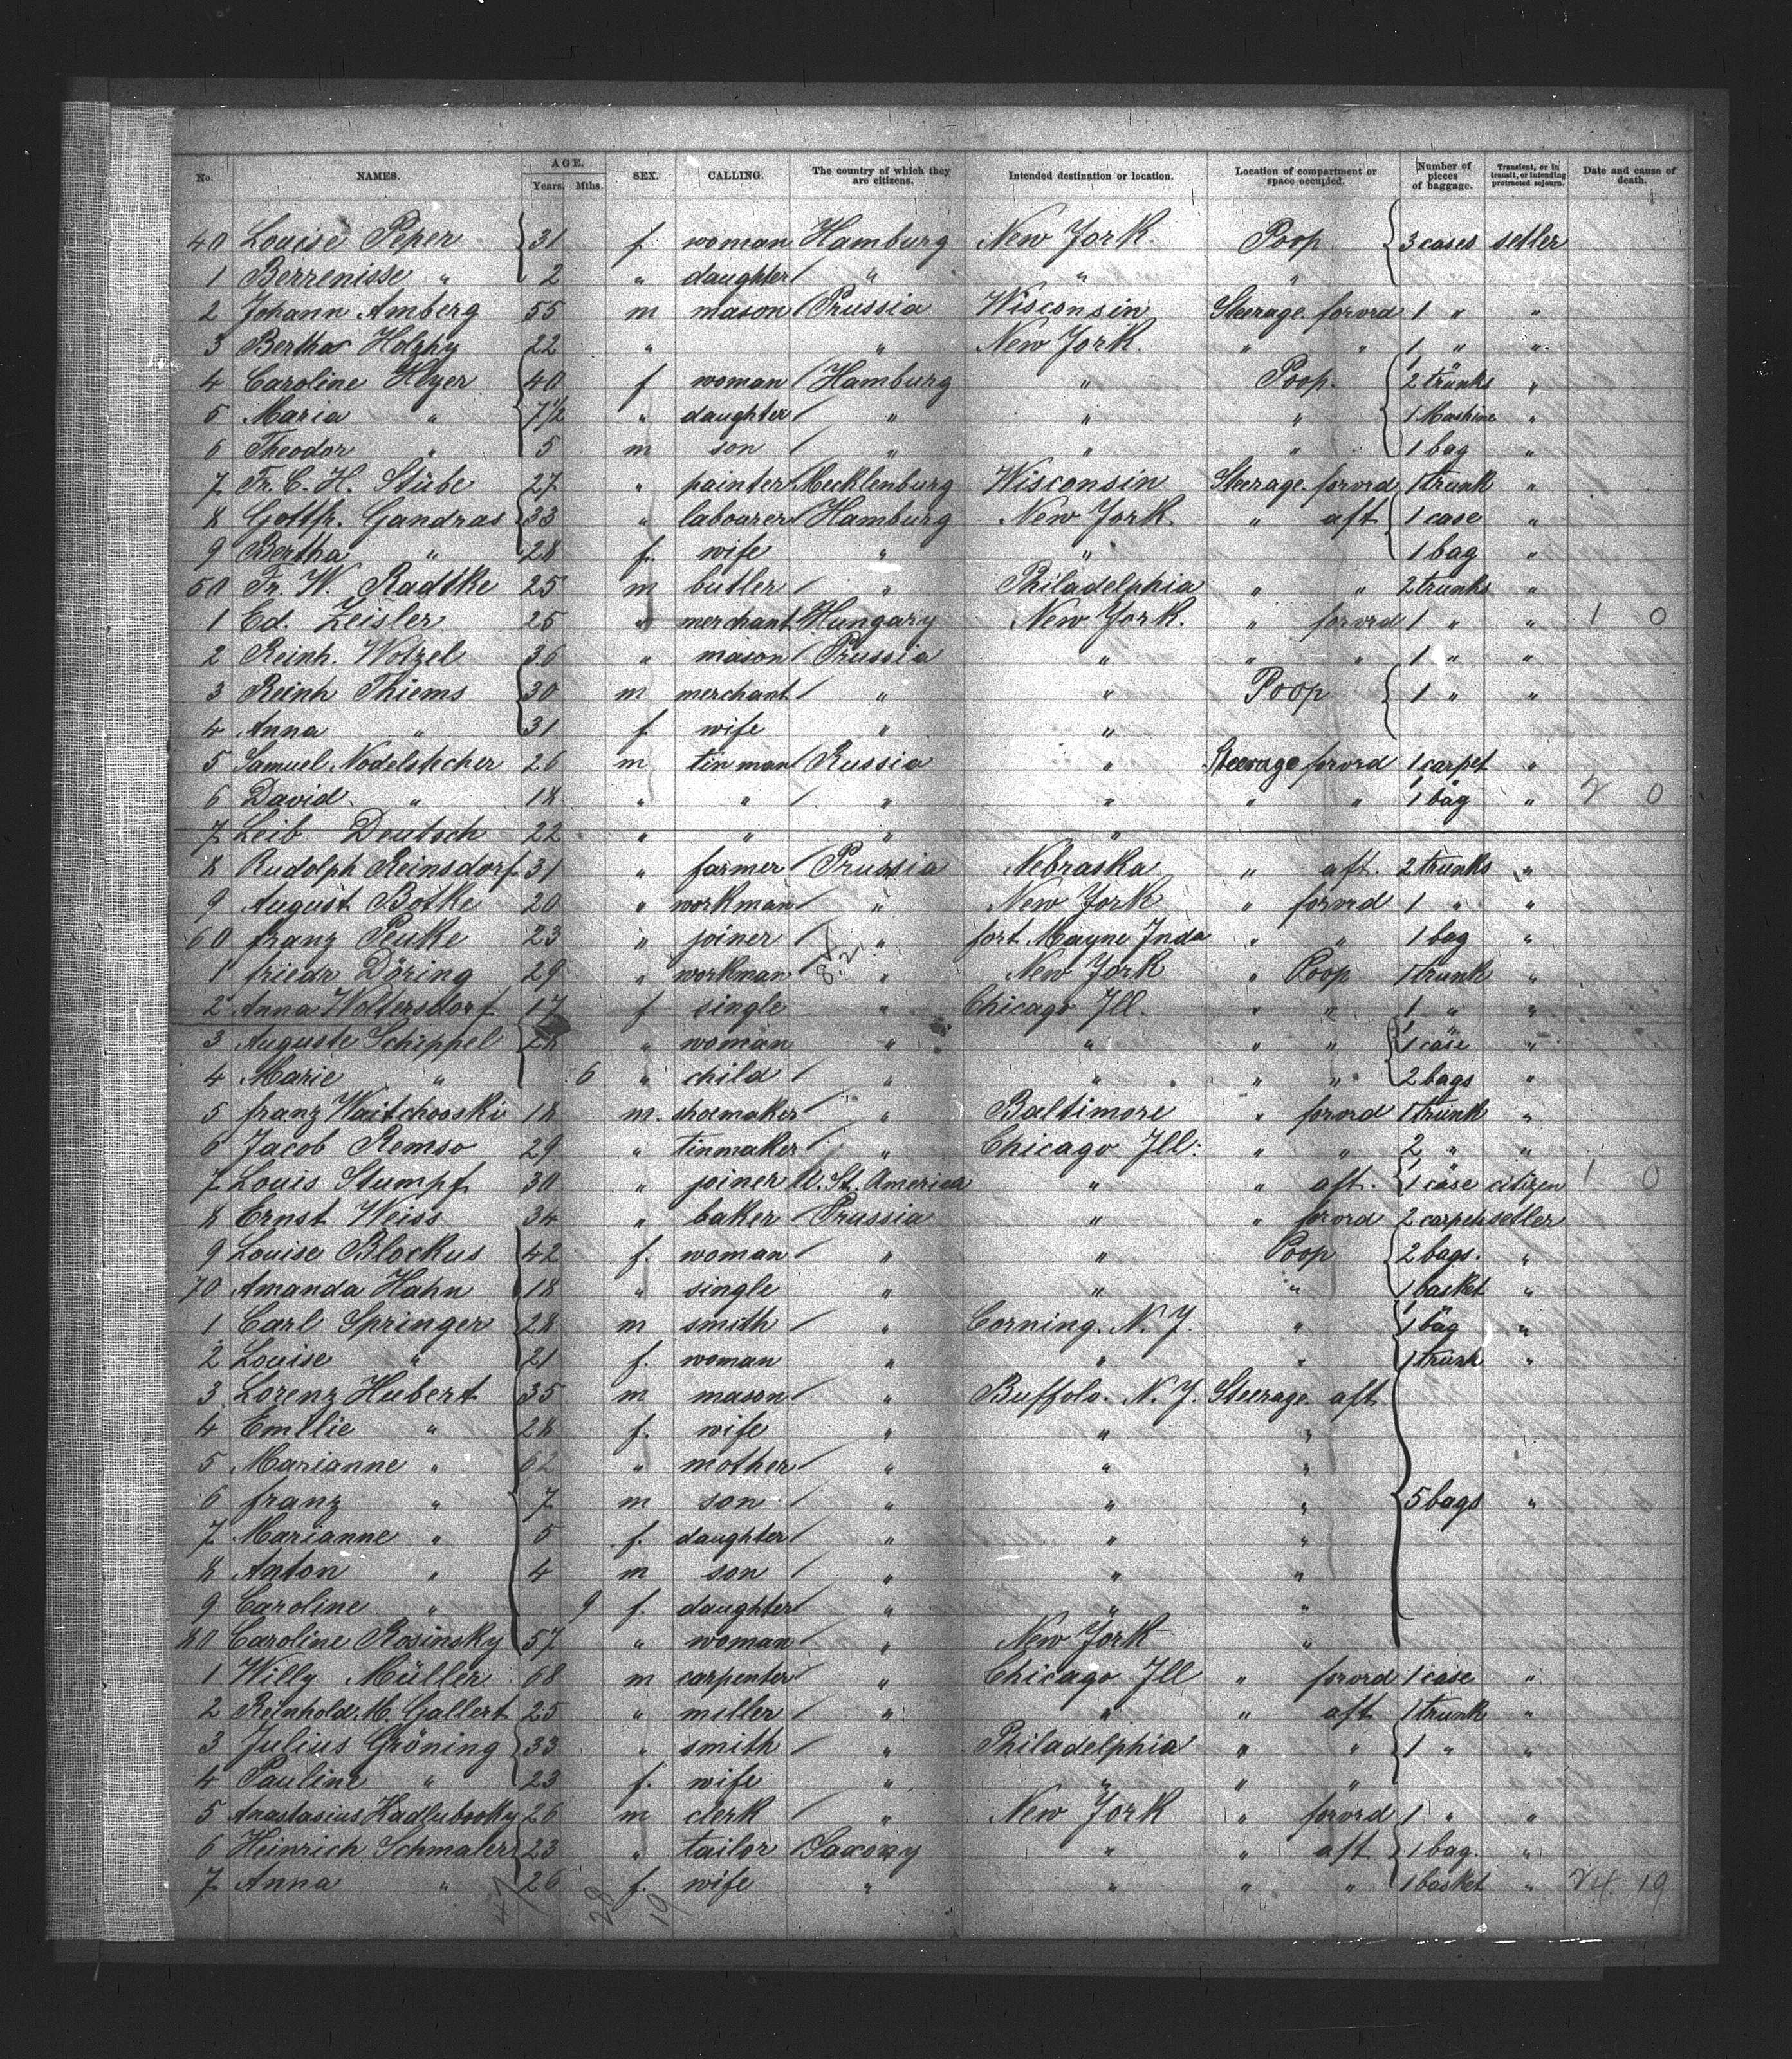 No. NAMES. AGE. Years. Mths. SEX. CALLING. The country of which they are citizens. Intended destination or location. Location of compartment or space occupied. Number of pieces of baggage. Transient, or in transit, or intending protracted sojourn. Date and cause of death.
40 Louise Peper 31 f. woman Hamburg New York. Poop 3 cases setler
1 Berrenisse " 2 " daughter " " "
2 Johann Amberg 55 m mason Prussia Wisconsin Steerage forord 1 " "
3 Bertha Holzhy 22 " " New York. " " 1 " "
4 Caroline Heyer 40 f woman Hamburg " Poop. 2 trunks "
5 Maria " 7 1/2 " daughter " " " 1 Mashine "
6 Theodor " 5 m son " " " 1 bag "
7 Fr. C. H. Stübe 27 " painter Mecklenburg Wisconsin Steerage forord 1 trunk "
8 Gottfr. Gandras 33 " labourer Hamburg New York. " aft 1 case "
9 Bertha " 28 f. wife " " 1 bag "
50 Fr. W. Radtke 25 m butler " Philadelphia " " 2 trunks "
1 Ed. Zeisler 25 " merchant Hungary New York. " forord 1 " " 1 0
2 Reinh. Wotzel 36 " mason Prussia " " " 1 " "
3 Reinh Thiems 30 m merchant " " Poop 1 " "
4 Anna " 31 f wife " "
5 Samuel Nodelstcher 26 m tinman Russia " Steerage forord 1 carpet "
6 David " 18 " " " " " " 1 bag " 2 0
7 Leib Deutsch 22 " " " "
8 Rudolph Reinsdorf 31 " farmer Prussia Nebraska " aft. 2 trunks "
9 August Botke 20 " workman " New York " forord 1 " "
60 franz Peuke 23 " joiner " fort Mayne Inda " " 1 bag "
1 friedr Döring 29 " workman " New York " Poop 1 trunk "
2 Anna Woltersdorf 17 f single " Chicago Ill. " " 1 " "
3 Auguste Schippel " woman " " " " 1 case "
4 Marie " 6 " child " " " " 2 bags "
5 franz Waitchooski 18 m. shoemaker " Baltimore " forord 1 trunk "
6 Jacob Remso 29 " tinmaker " Chicago Ill. " " 2 " "
7 Louis Stumpf 30 " joiner U. St. America " " aft. 1 case citizen 1 0
8 Ernst Weiss 34 " baker Prussia " " forord 2 carpets setler
9 Louise Blockus 42 f. woman " " Poop 2 bags. "
70 Amanda Hahn 18 " single " " " 1 basket "
1 Carl Springer 28 m smith " Corning. N. Y. " 1 bag "
2 Louise " 21 f. woman " " " 1 trunk "
3 Lorenz Hubert 35 m mason " Buffolo. N. Y. Steerage aft
4 Emilie " 28 f. wife " " "
5 Marianne " 62 " mother " " "
6 franz " 7 m son " " " 5 bags "
7 Marianne " 5 f. daughter " " "
8 Anton " 4 m son " " "
9 Caroline " 9 f. daughter " " "
80 Caroline Rosinsky 57 " woman " New York "
1 Willy Müller 68 m carpenter " Chicago Ill " forord 1 case "
2 Reinhold M. Gallert 25 " miller " " " aft 1 trunk "
3 Julius Gröning 33 " smith " Philadelphia " " 1 " "
4 Pauline " 23 f. wife " " " "
5 Anastasius Kadlubooky 26 m clerk " New York " forord 1 " "
6 Heinrich Schmaler 23 " tailor Saxony " " aft 1 bag. "
7 Anna " 26 f. wife " " " " 1 basket " 24. 19
47 28 19